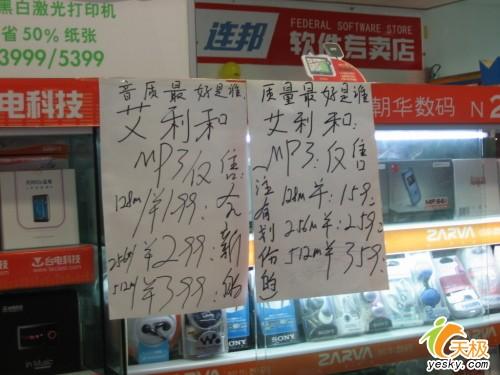 黑白激光打印机
省50%纸张
3999/5399
连邦
FEDERAL SOFTWARE STORE
软件专卖店
电科技
朝华数码
N
音质最好是谁
艾利和
MP3仅售
128m/羊199:
256m/羊299
512m羊399:
全新的
质量最好是谁
艾利和:
MP3:仅售
128m羊:159:
256m羊:259:
512m羊359:
注有划伤的
台电科技
ZARVA
ZARVA
ZARVA
天极
yesky.com